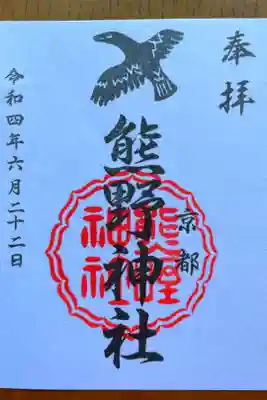 奉拝
京都
熊野神社
熊野
神社
令和四年六月二十二日